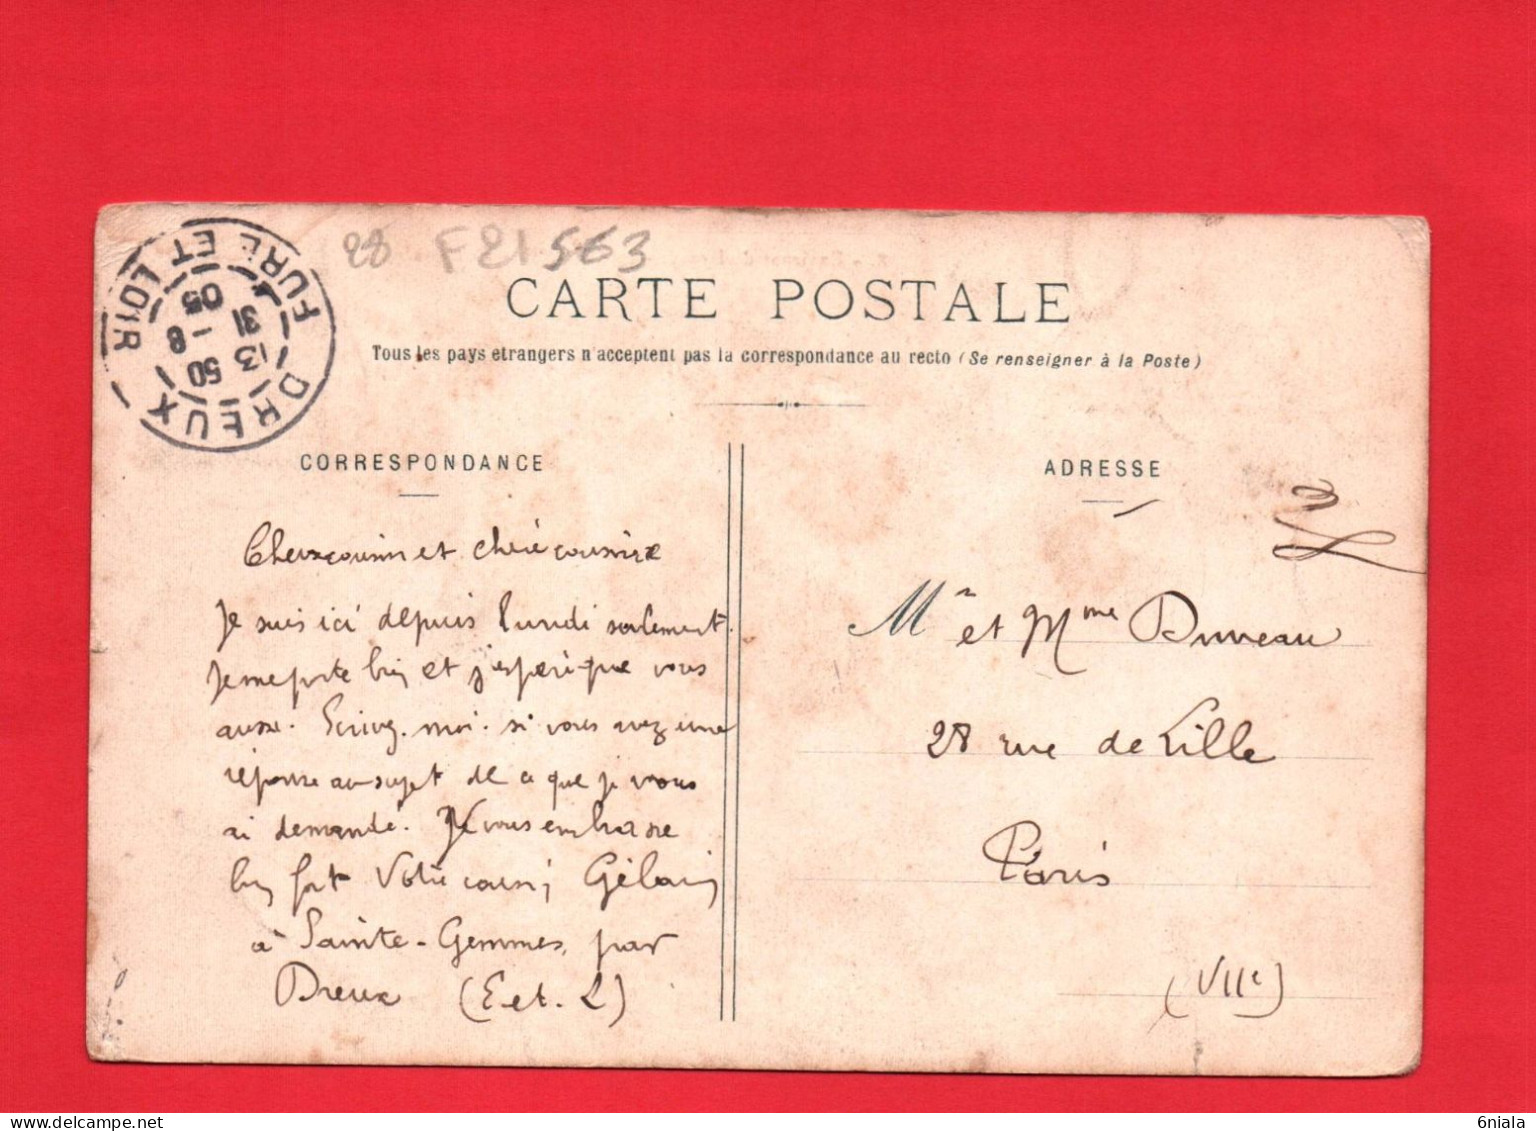 28 F21563
CARTE POSTALE
Tous les pays etrangers n'acceptent pas la correspondance au recto (Se renseigner à la Poste)
DREUX
EURE ET LOIR
13 50
31 - 8
05
CORRESPONDANCE
Cher cousin et chère cousine
Je suis ici depuis lundi seulement.
Je me porte bien et j'espère que vous
aussi. Ecrivez-moi si vous avez une
réponse au sujet de ce que je vous
ai demandé. Je vous embrasse
bien fort Votre cousin
à Sainte-Gemmes, par
Dreux (E et. L)
ADRESSE
Mr et Mme
28 rue de Lille
Paris
(VIIe)
delcampe.net
6niala